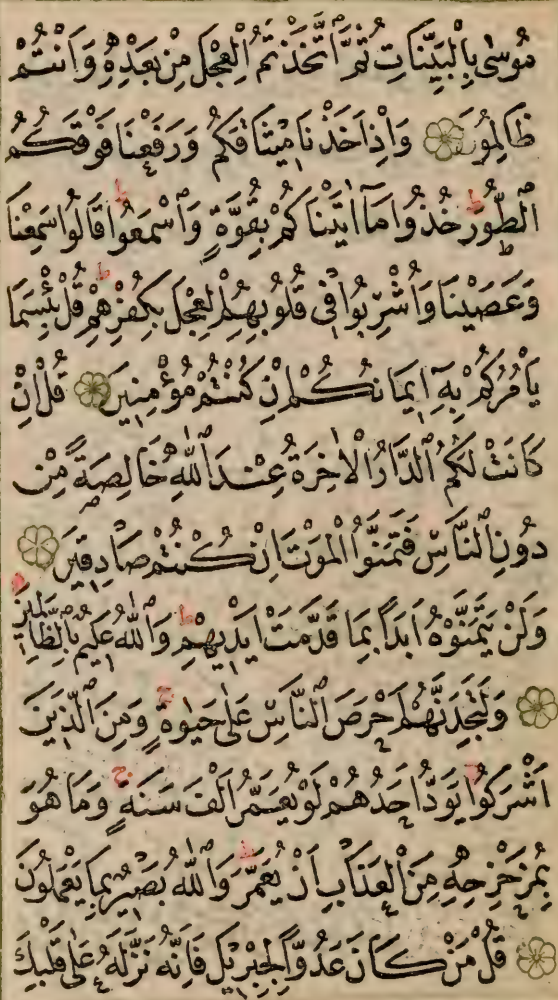 مُوسٰى بِالْبَيِّنَاتِ ثُمَّ اتَّخَذْتُمُ الْعِجْلَ مِنْ بَعْدِهِ وَاَنْتُمْ
ظَالِمُونَ وَاِذْ اَخَذْنَا مِيثَاقَكُمْ وَرَفَعْنَا فَوْقَكُمُ
الطُّورَ ط خُذُوا مَٓا اٰتَيْنَاكُمْ بِقُوَّةٍ وَاسْمَعُوا ط قَالُوا سَمِعْنَا
وَعَصَيْنَا وَاُشْرِبُوا فِى قُلُوبِهِمُ الْعِجْلَ بِكُفْرِهِمْ ط قُلْ بِئْسَمَا
يَاْمُرُكُمْ بِهِٓ اِيمَانُكُمْ اِنْ كُنْتُمْ مُؤْمِنِينَ قُلْ اِنْ
كَانَتْ لَكُمُ الدَّارُ الْاٰخِرَةُ عِنْدَ اللّٰهِ خَالِصَةً مِنْ
دُونِ النَّاسِ فَتَمَنَّوُا الْمَوْتَ اِنْ كُنْتُمْ صَادِقِينَ
وَلَنْ يَتَمَنَّوْهُ اَبَدًا بِمَا قَدَّمَتْ اَيْدِيهِمْ ط وَاللّٰهُ عَلِيمٌ بِالظَّالِمِينَ
وَلَتَجِدَنَّهُمْ اَحْرَصَ النَّاسِ عَلٰى حَيٰوةٍ ج وَمِنَ الَّذِينَ
اَشْرَكُوا يَوَدُّ اَحَدُهُمْ لَوْ يُعَمَّرُ اَلْفَ سَنَةٍ ج وَمَا هُوَ
بِمُزَحْزِحِهِ مِنَ الْعَذَابِ اَنْ يُعَمَّرَ ط وَاللّٰهُ بَصِيرٌ بِمَا يَعْمَلُونَ
قُلْ مَنْ كَانَ عَدُوًّا لِجِبْرِيلَ فَاِنَّهُ نَزَّلَهُ عَلٰى قَلْبِكَ